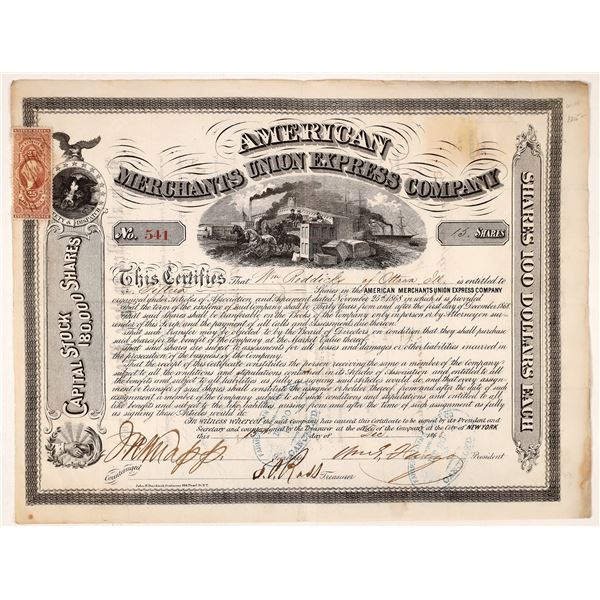 AMERICAN
MERCHANTS UNION EXPRESS COMPANY
No. 541
15 SHARES
CAPITAL STOCK
180,000 SHARES
SHARES 100 DOLLARS EACH
25
This Certifies That Wm Reddick of Ottawa Ill. is entitled to
Fifteen Shares in the AMERICAN MERCHANTS UNION EXPRESS COMPANY
organized under Articles of Association, and Agreement dated November 25th 1868 in which it is provided
that the term of the existence of said Company shall be Thirty Years from and after the first day of December 1868.
That said shares shall be transferable on the Books of the Company only in person or by Attorney on sur-
render of this Scrip, and the payment of all Calls and Assessments due thereon.
That such Transfer may be objected to by the Board of Directors on condition that they shall purchase
said shares for the benefit of the Company at the Market Value thereof.
That said shares are subject to assessments for all losses and damages or other liabilities incurred in
the prosecution of the business of the Company.
That the receipt of this certificate constitutes the person receiving the same a member of the Company
subject to all the conditions and stipulations contained in said Articles of Association and entitled to all
the benefits and subject to all liabilities as fully as signing said Articles would do, and that every assign-
ment or transfer of said shares constitutes the assignee a holder thereof from and after the date of such
assignment a member of the Company subject to all such conditions and stipulations, and entitled to all
like benefits and subject to the like liabilities, arising from and after the time of such assignment as fully
as signing those Articles would do.
In witness whereof the said Company has caused this Certificate to be signed by its President and
Secretary and countersigned by the Treasurer at the office of the Company at the City of NEW YORK
this day of Dec 186
Countersigned
J.N. Knapp
J.C. Ross Treasurer
Wm G. Fargo President